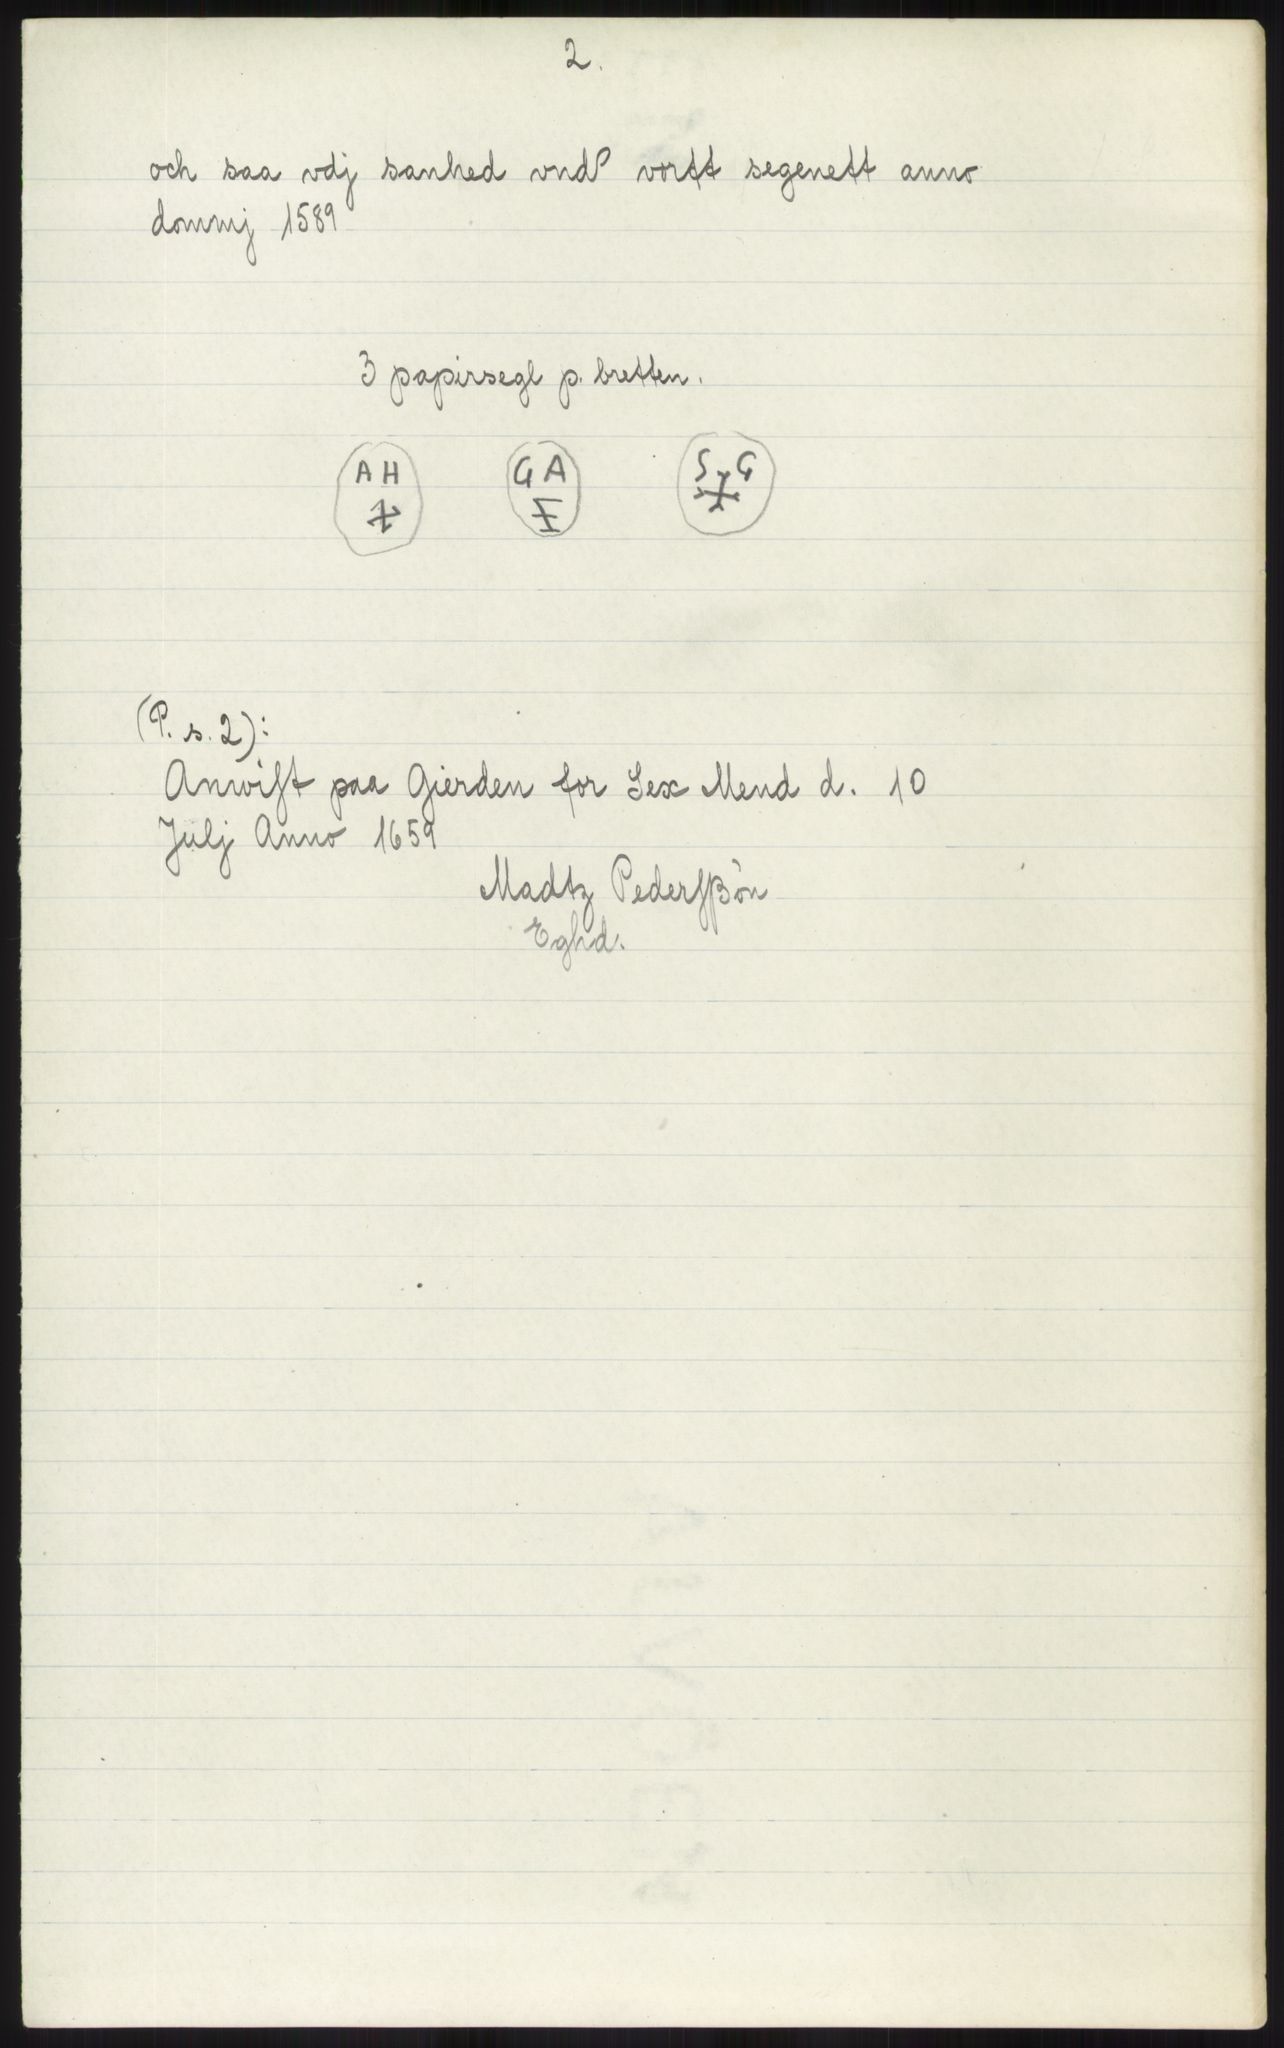 2.
och saa vdj sanhed vnd vortt segenett anno
dommj 1589
3 papirsegl p. bretten.
AH GA SG
(P. s. 2):
Anvist paa Gierden for Sex Mend d. 10
Julj Anno 1659
Madtz Pederßøn
Eghd.